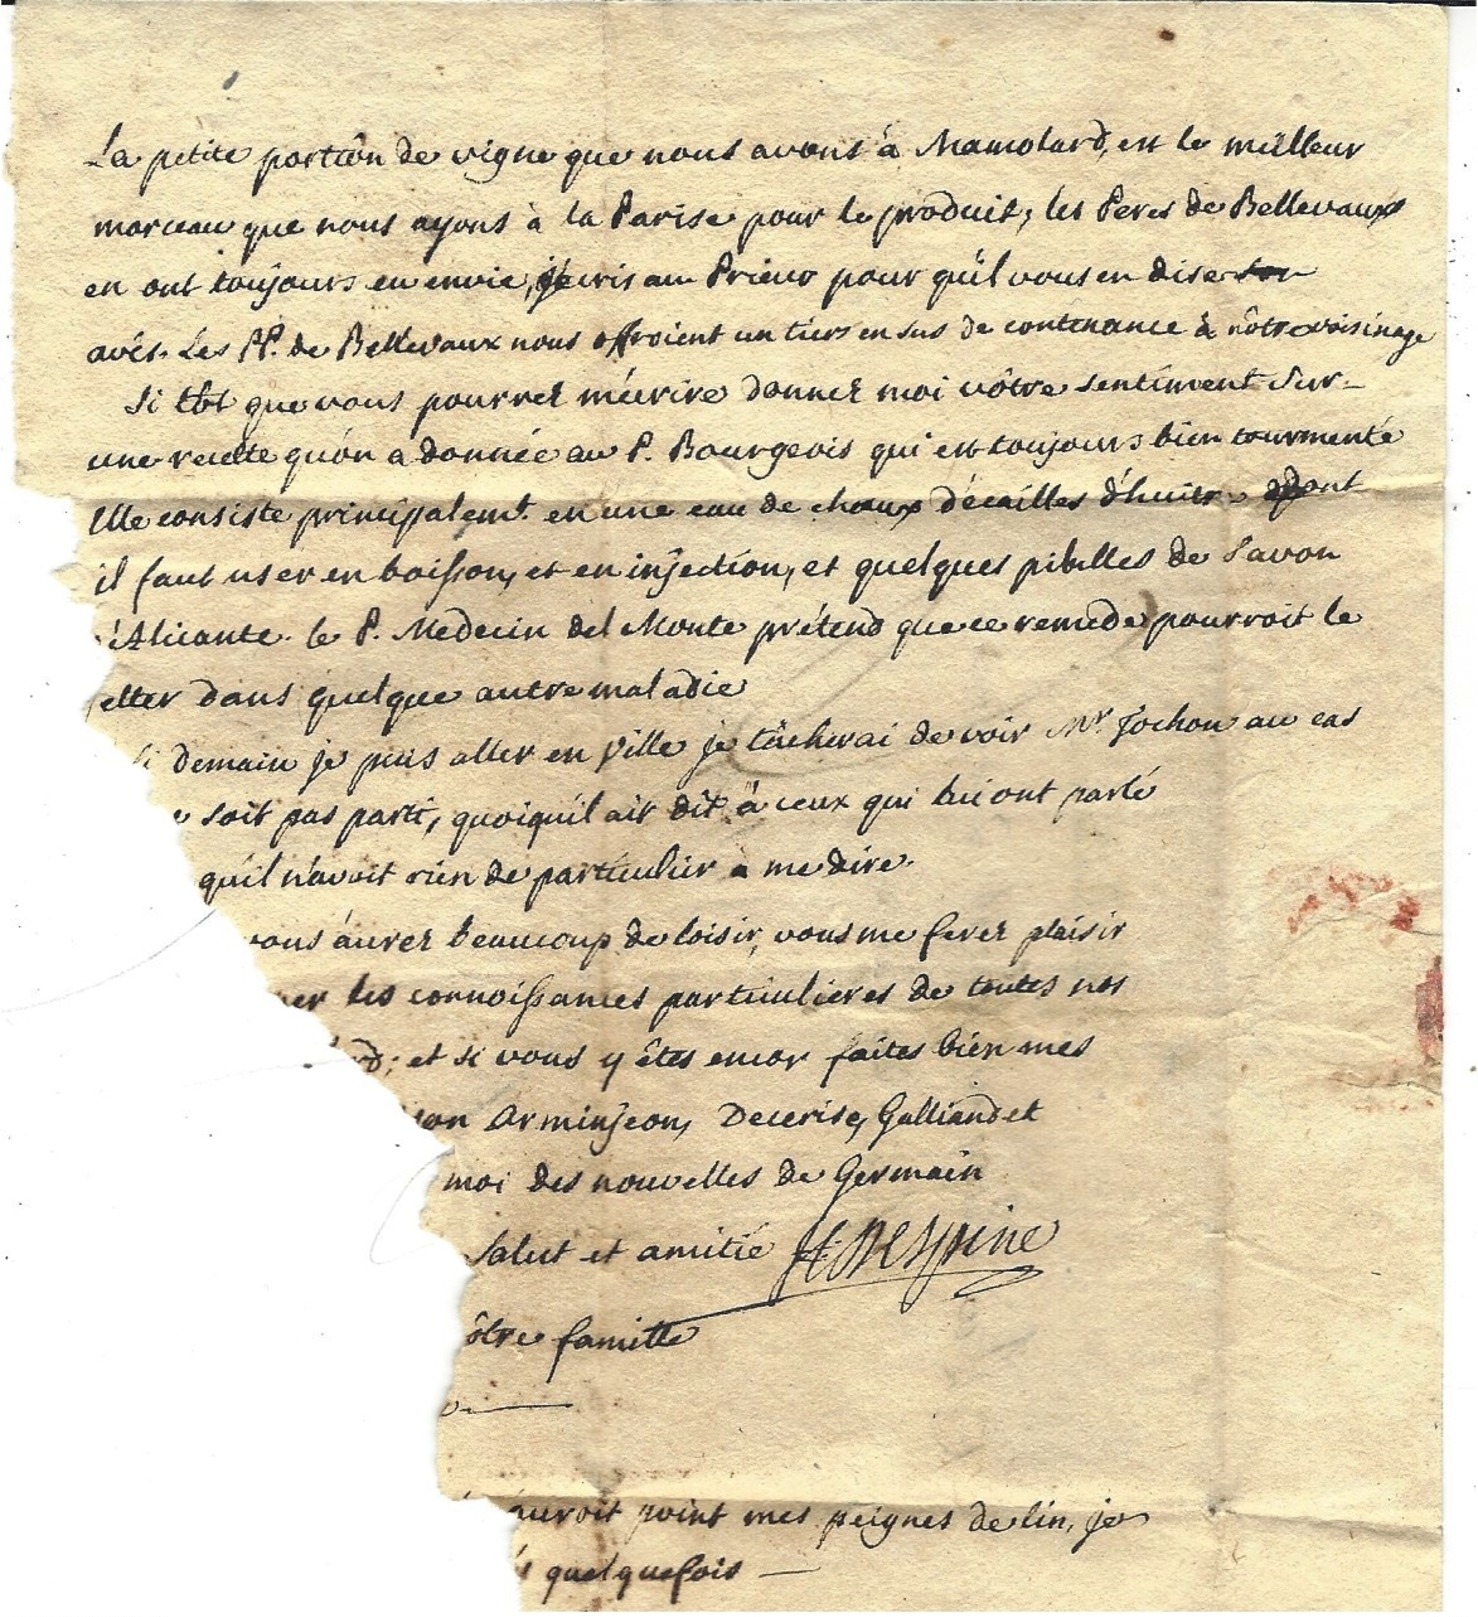 La petite portiôn de vigne que nous avons à Mamolard, est le meilleur
morceau que nous ayons à la Parise pour le produit, les Peres de Bellevaux
en ont toujours eu envie, j'écris au Prieur pour qu'il vous en dise son
avis. Les PP. de Bellevaux nous offroient un tiers en sus de contenance à nôtre voisinage
Si tôt que vous pourrez m'écrire donnez moi vôtre sentiment sur
une recette qu'on a donnée au P. Bourgeois qui est toujours bien tourmenté
Elle consiste principalemt. en une eau de chaux d'écailles d'huitre dont
il faut user en boisson, et en injection, et quelques pilulles de Savon
'Alicante. le P. Medecin del Monte prétend que ce remede pourroit le
etter dans quelque autre maladie
Si demain je puis aller en Ville je tâcherai de voir Mr. Jochon au cas
e soit pas parti, quoiqu'il ait dit à ceux qui lui ont parlé
qu'il n'avoit rien de particulier a me dire.
vous aurez beaucoup de loisir, vous me ferez plaisir
ner les connoissances particulieres de toutes nos
rd; et si vous y êtes encor faites bien mes
on Arminjeon, Decerise, Galliand et
moi des nouvelles de Germain
Salut et amitié H. Despine
ôtre famille
auroit point mes peignes de lin, je
s quelquefois —